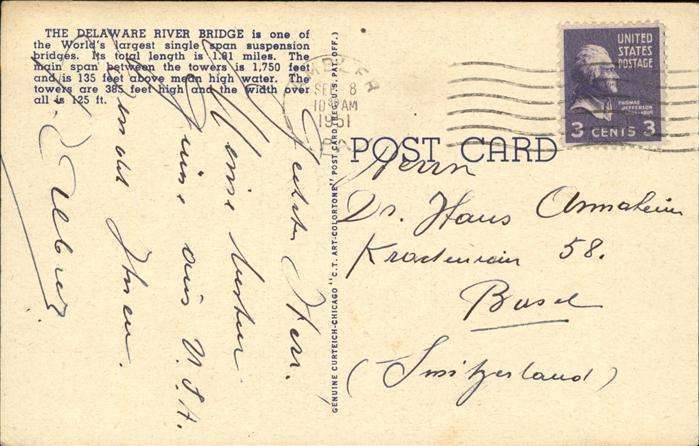 THE DELAWARE RIVER BRIDGE is one of
the World's largest single span suspension
bridges. Its total length is 1.81 miles. The
main span between the towers is 1,750 feet
and is 135 feet above mean high water. The
towers are 385 feet high and the width over
all is 125 ft.
GENUINE CURTEICH-CHICAGO "C.T. ART-COLORTONE" POST CARD (REG. U.S. PAT. OFF.)
8
AM
1951
UNITED
STATES
POSTAGE
THOMAS
JEFFERSON
3 CENTS 3
POST CARD
Herrn
Dr. Hans
58.
Basel
(Switzerland)
Herr.
Meine besten
aus U.S.A.
Ihnen